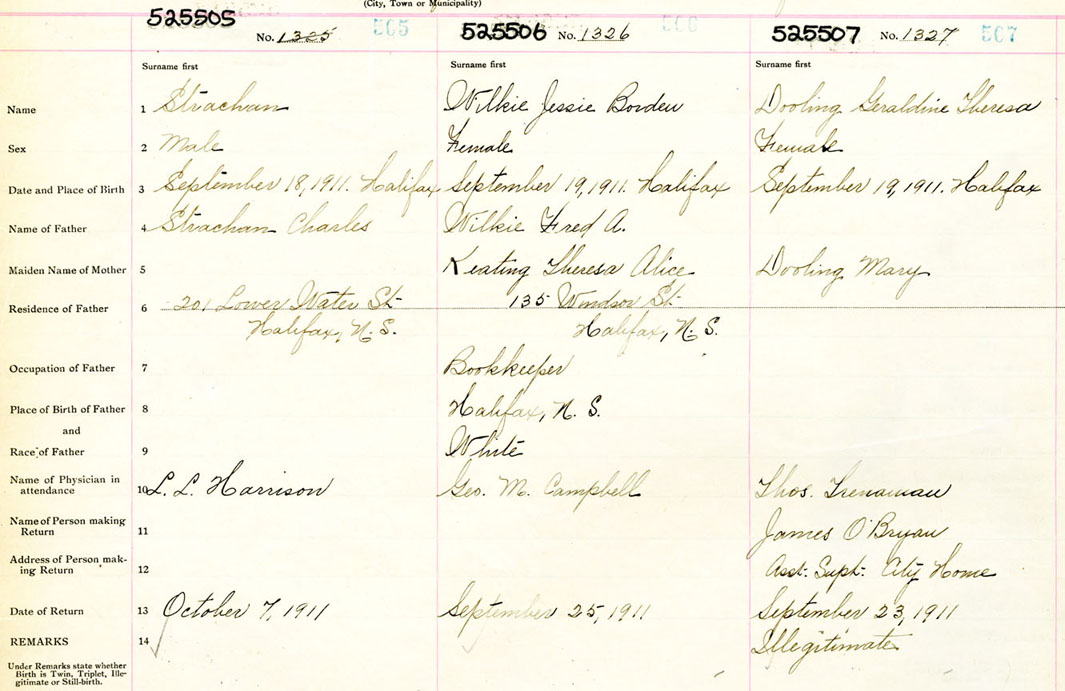 (City, Town or Municipality)
525505 No. 1325 565
525506 No. 1326 566
525507 No. 1327 567
Surname first Surname first Surname first
Name 1 Strachan Wilkie Jessie Borden Dooling Geraldine Theresa
Sex 2 Male Female Female
Date and Place of Birth 3 September 18, 1911. Halifax September 19, 1911. Halifax September 19, 1911. Halifax
Name of Father 4 Strachan Charles Wilkie Fred A.
Maiden Name of Mother 5 Keating Theresa Alice Dooling Mary
Residence of Father 6 201 Lower Water St. 135 Windsor St.
Halifax, N. S. Halifax, N. S.
Occupation of Father 7 Bookkeeper
Place of Birth of Father 8 Halifax, N. S.
and
Race of Father 9 White
Name of Physician in
attendance 10 L. L. Harrison Geo. M. Campbell Thos. Trenaman
Name of Person making
Return 11 James O'Bryan
Address of Person mak-
ing Return 12 Asst. Supt. City Home
Date of Return 13 October 7, 1911 September 25, 1911 September 23, 1911
REMARKS 14 Illegitimate
Under Remarks state whether
Birth is Twin, Triplet, Ille-
gitimate or Still-birth.